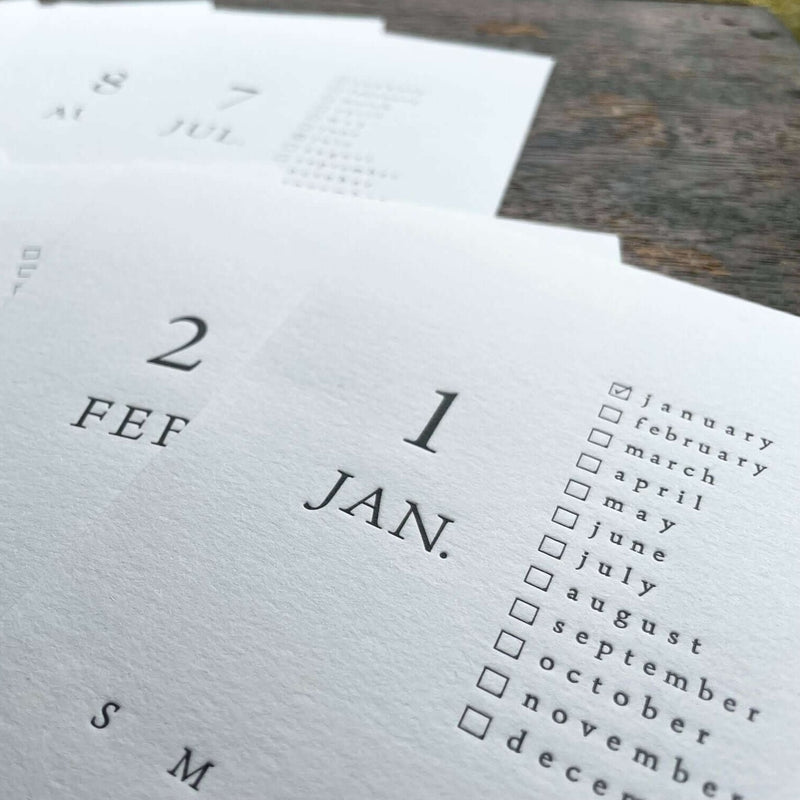 8
7
JUL.
2
FEF
1
JAN.
january
february
march
april
may
june
july
august
september
october
november
decem
S
M